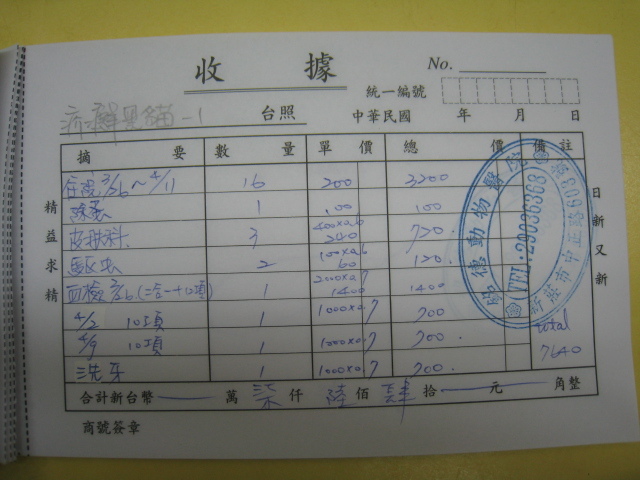 收據
No.
統一編號
台照 中華民國 年 月 日
摘要 數量 單價 總價 備註
住院 3/26~4/11 16 200 3200
除蚤 1 100 100
皮膚科 3 400x0.6 240 720.
驅虫 2 100x0.6 60 120.
血檢 3/26 (二合一+12項) 1 2000x0.7 1400 1400
4/2 10項 1 1000x0.7 700
4/9 10項 1 1000x0.7 700.
洗牙 1 1000x0.7 700.
total
7640
合計新台幣 萬 柒仟 陸佰 肆拾 元 角整
商號簽章
精益求精
日新又新
德動物醫院
TEL:29036368
新莊市中正路609號